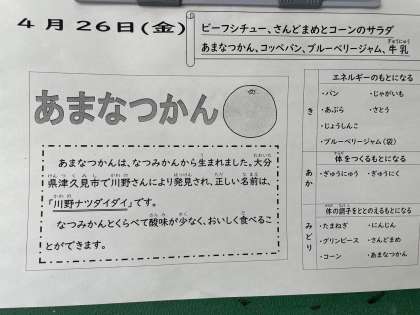 4月26日(金)
ビーフシチュー、さんどまめとコーンのサラダ
あまなつかん、コッペパン、ブルーベリージャム、牛乳
ぎゅうにゅう
あまなつかん
あまなつかんは、なつみかんから生まれました。大分
県津久見市で川野さんにより発見され、正しい名前は、
「川野ナツダイダイ」です。
なつみかんとくらべて酸味が少なく、おいしく食べるこ
とができます。
き
エネルギーのもとになる
・パン ・じゃがいも
・あぶら ・さとう
・じょうしんこ
・ブルーベリージャム(袋)
あか
体をつくるもとになる
・ぎゅうにゅう ・ぎゅうにく
みどり
体の調子をととのえるもとになる
・たまねぎ ・にんじん
・グリンピース ・さんどまめ
・コーン ・あまなつかん